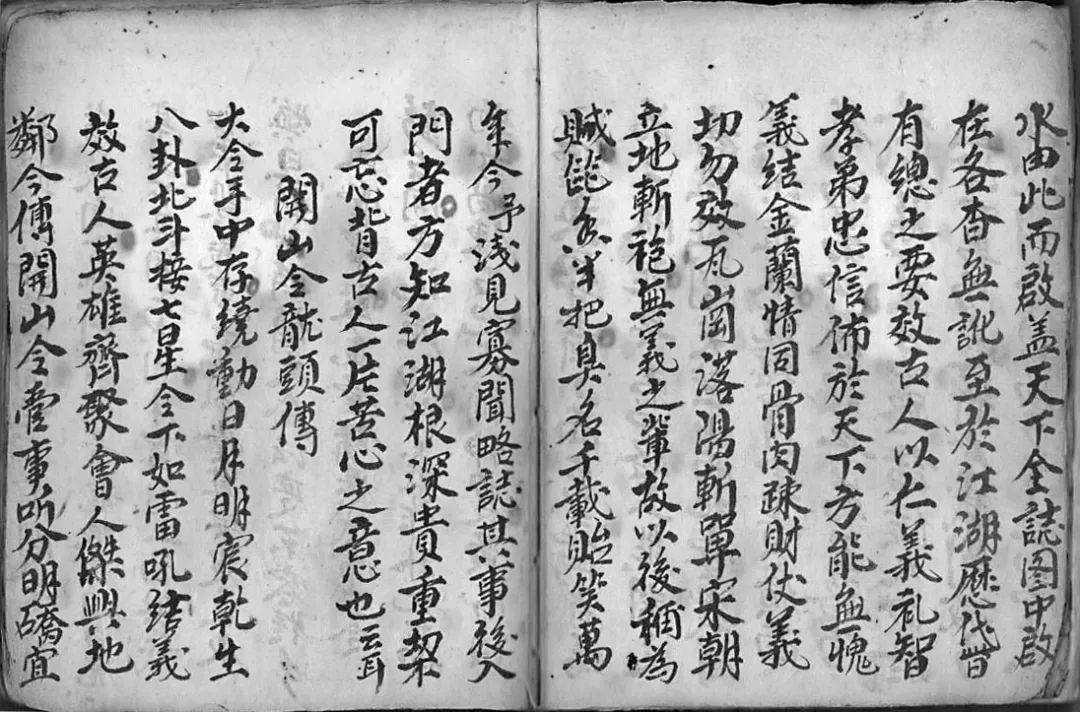 水由此而啟盖天下全誌图中啟
在各杳無訛至於江湖歷代皆
有總之要效古人以仁義礼智
孝弟忠信佈於天下方能無愧
義結金蘭情同骨肉疎財仗義
切勿效瓦崗落陽斬單宋朝
立地斬袍無義之輩故以後稱為
賊半把臭名千載貽笑萬
年今予淺見寡聞略誌其事後入
門者方知江湖根深貴重契
可忘背古人一片苦心之意也云耳
開山令龍頭傳
大令手中存繞動日月明宸乾生
八卦北斗接七星令下如雷吼結義
效古人英雄齊聚會人傑與地
鄰今傳開山令當事听分明宜